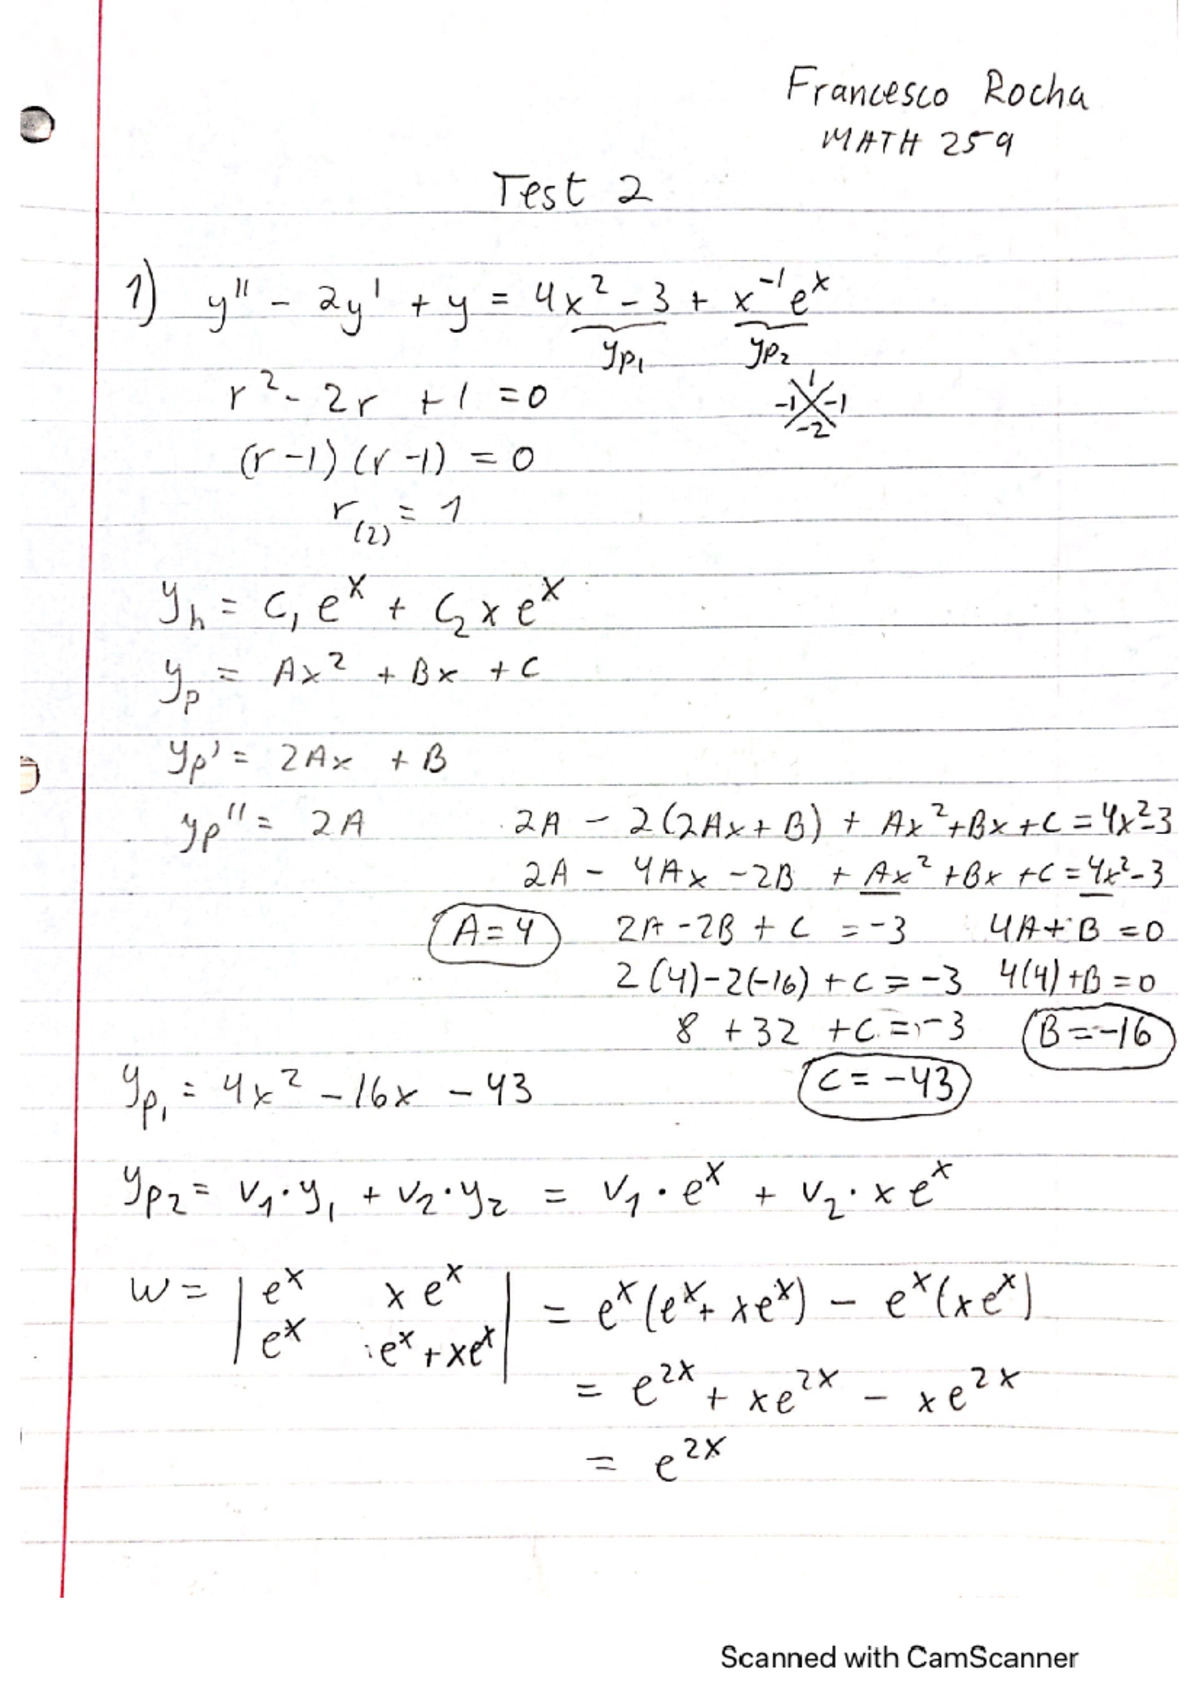 Francesco Rocha
MATH 259
Test 2
1) y'' - 2y' + y = 4x² - 3 + x⁻¹eˣ
yp₁ yp₂
r² - 2r + 1 = 0
1
-1 -1
-2
(r - 1) (r - 1) = 0
r₍₂₎ = 1
yₕ = c₁ eˣ + c₂ x eˣ
yₚ = Ax² + Bx + C
yp' = 2Ax + B
yp'' = 2A 2A - 2(2Ax + B) + Ax² + Bx + C = 4x² - 3
2A - 4Ax - 2B + Ax² + Bx + C = 4x² - 3
A = 4 2A - 2B + C = -3 4A + B = 0
2(4) - 2(-16) + C = -3 4(4) + B = 0
8 + 32 + C = -3 B = -16
yp₁ = 4x² - 16x - 43 C = -43
yp₂ = v₁·y₁ + v₂·y₂ = v₁·eˣ + v₂·x eˣ
w = | eˣ x eˣ | = eˣ(eˣ + xeˣ) - eˣ(xeˣ)
| eˣ eˣ + xeˣ |
= e²ˣ + xe²ˣ - xe²ˣ
= e²ˣ
Scanned with CamScanner